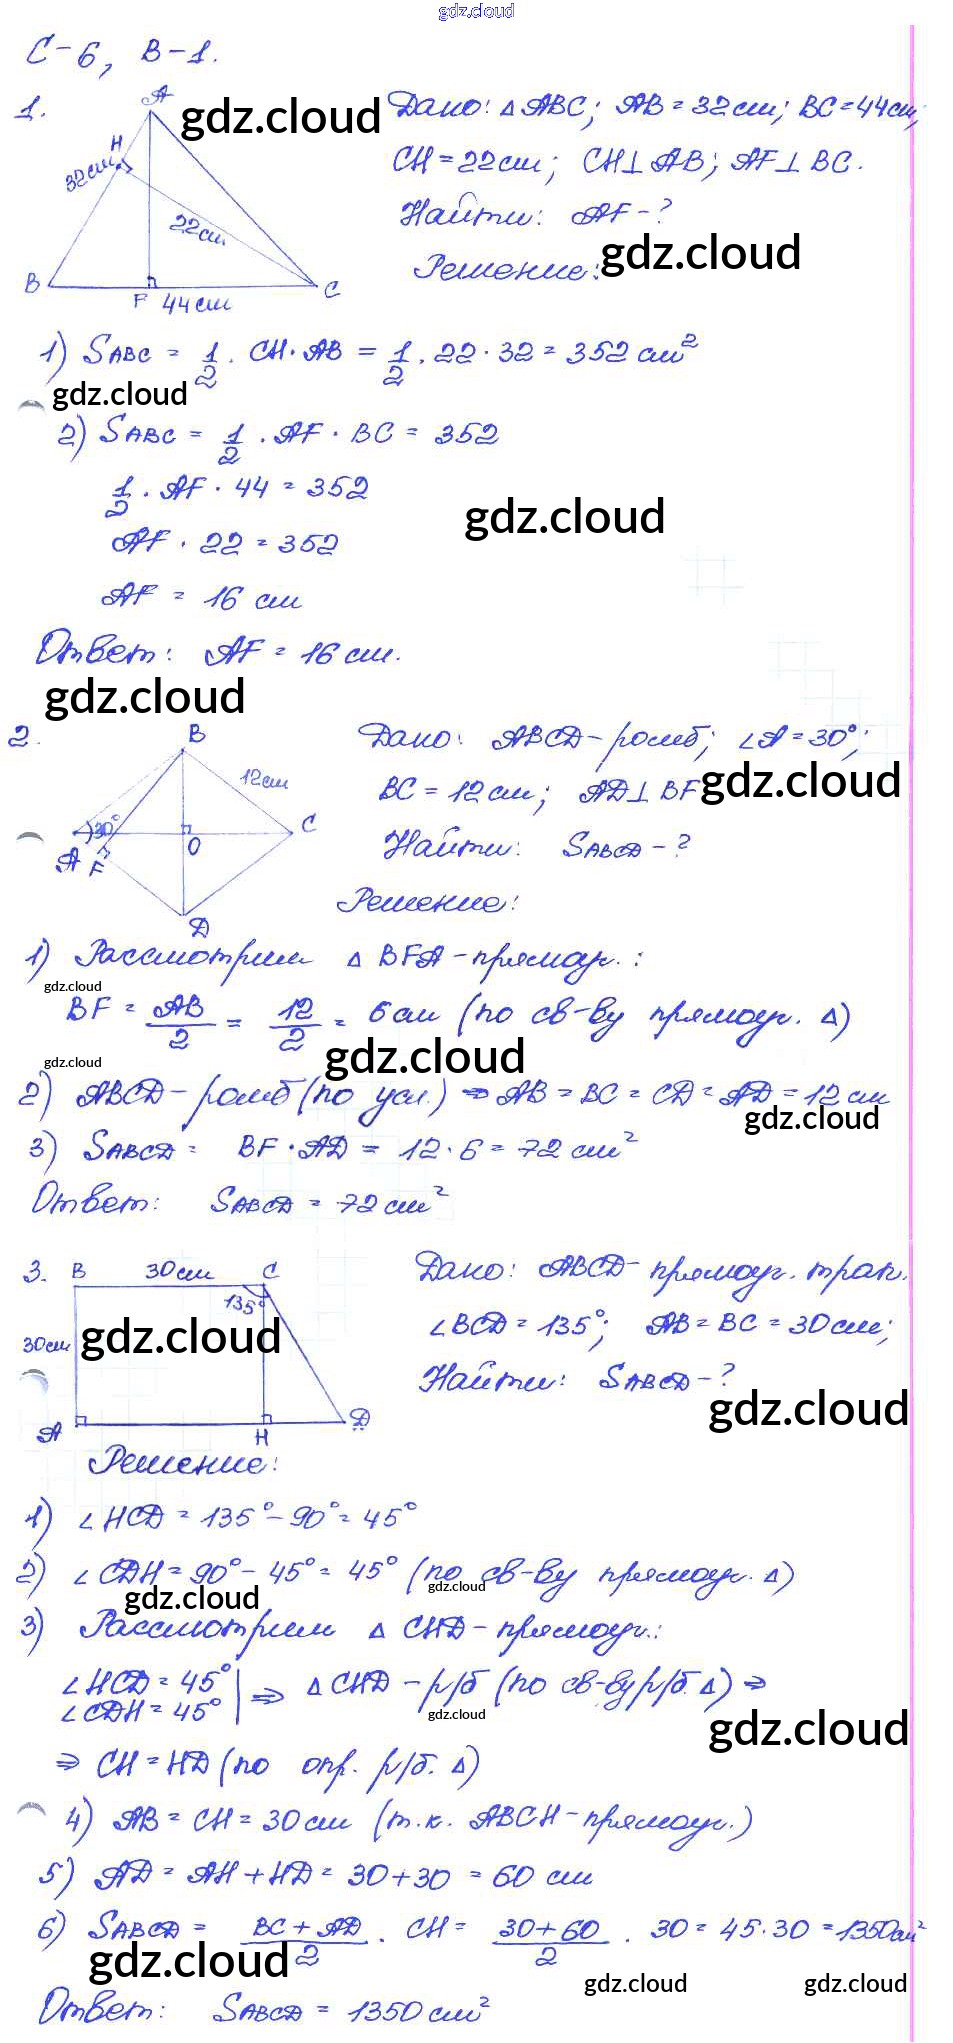 gdz.cloud
С-6, В-1.
1.
A
H
32см
22см
B
F
44см
C
gdz.cloud
Дано: △ABC; AB = 32см; BC = 44см;
CH = 22см; CH⊥AB; AF⊥BC.
Найти: AF-?
Решение:
gdz.cloud
1) SABC = 1/2 · CH · AB = 1/2 · 22 · 32 = 352 см²
gdz.cloud
2) SABC = 1/2 · AF · BC = 352
1/2 · AF · 44 = 352
gdz.cloud
AF · 22 = 352
AF = 16 см
Ответ: AF = 16 см.
gdz.cloud
2.
B
12см
30°
C
O
A
F
D
Дано: ABCD-ромб; ∠A = 30°;
BC = 12 см; AD⊥BF
gdz.cloud
Найти: SABCD-?
Решение:
1) Рассмотрим △ BFA-прямоуг.:
gdz.cloud
BF = AB/2 = 12/2 = 6 см (по св-ву прямоуг. △)
gdz.cloud
gdz.cloud
2) ABCD-ромб (по усл.) ⇒ AB = BC = CD = AD = 12 см
gdz.cloud
3) SABCD = BF · AD = 12 · 6 = 72 см²
Ответ: SABCD = 72 см²
3.
B
30см
C
135°
30см
gdz.cloud
A
H
D
Дано: ABCD-прямоуг. трап.
∠BCD = 135°; AB = BC = 30см;
Найти: SABCD-?
gdz.cloud
Решение:
1) ∠HCD = 135° - 90° = 45°
2) ∠CDH = 90° - 45° = 45° (по св-ву прямоуг. △)
gdz.cloud
gdz.cloud
3) Рассмотрим △ CHD-прямоуг.:
∠HCD = 45°
∠CDH = 45° | ⇒ △CHD - р/б (по св-ву р/б. △) ⇒
gdz.cloud
gdz.cloud
⇒ CH = HD (по опр. р/б. △)
4) AB = CH = 30 см (т.к. ABCH-прямоуг.)
5) AD = AH + HD = 30 + 30 = 60 см
6) SABCD = BC + AD/2 · CH = 30+60/2 · 30 = 45 · 30 = 1350см²
gdz.cloud
gdz.cloud
gdz.cloud
Ответ: SABCD = 1350 см²